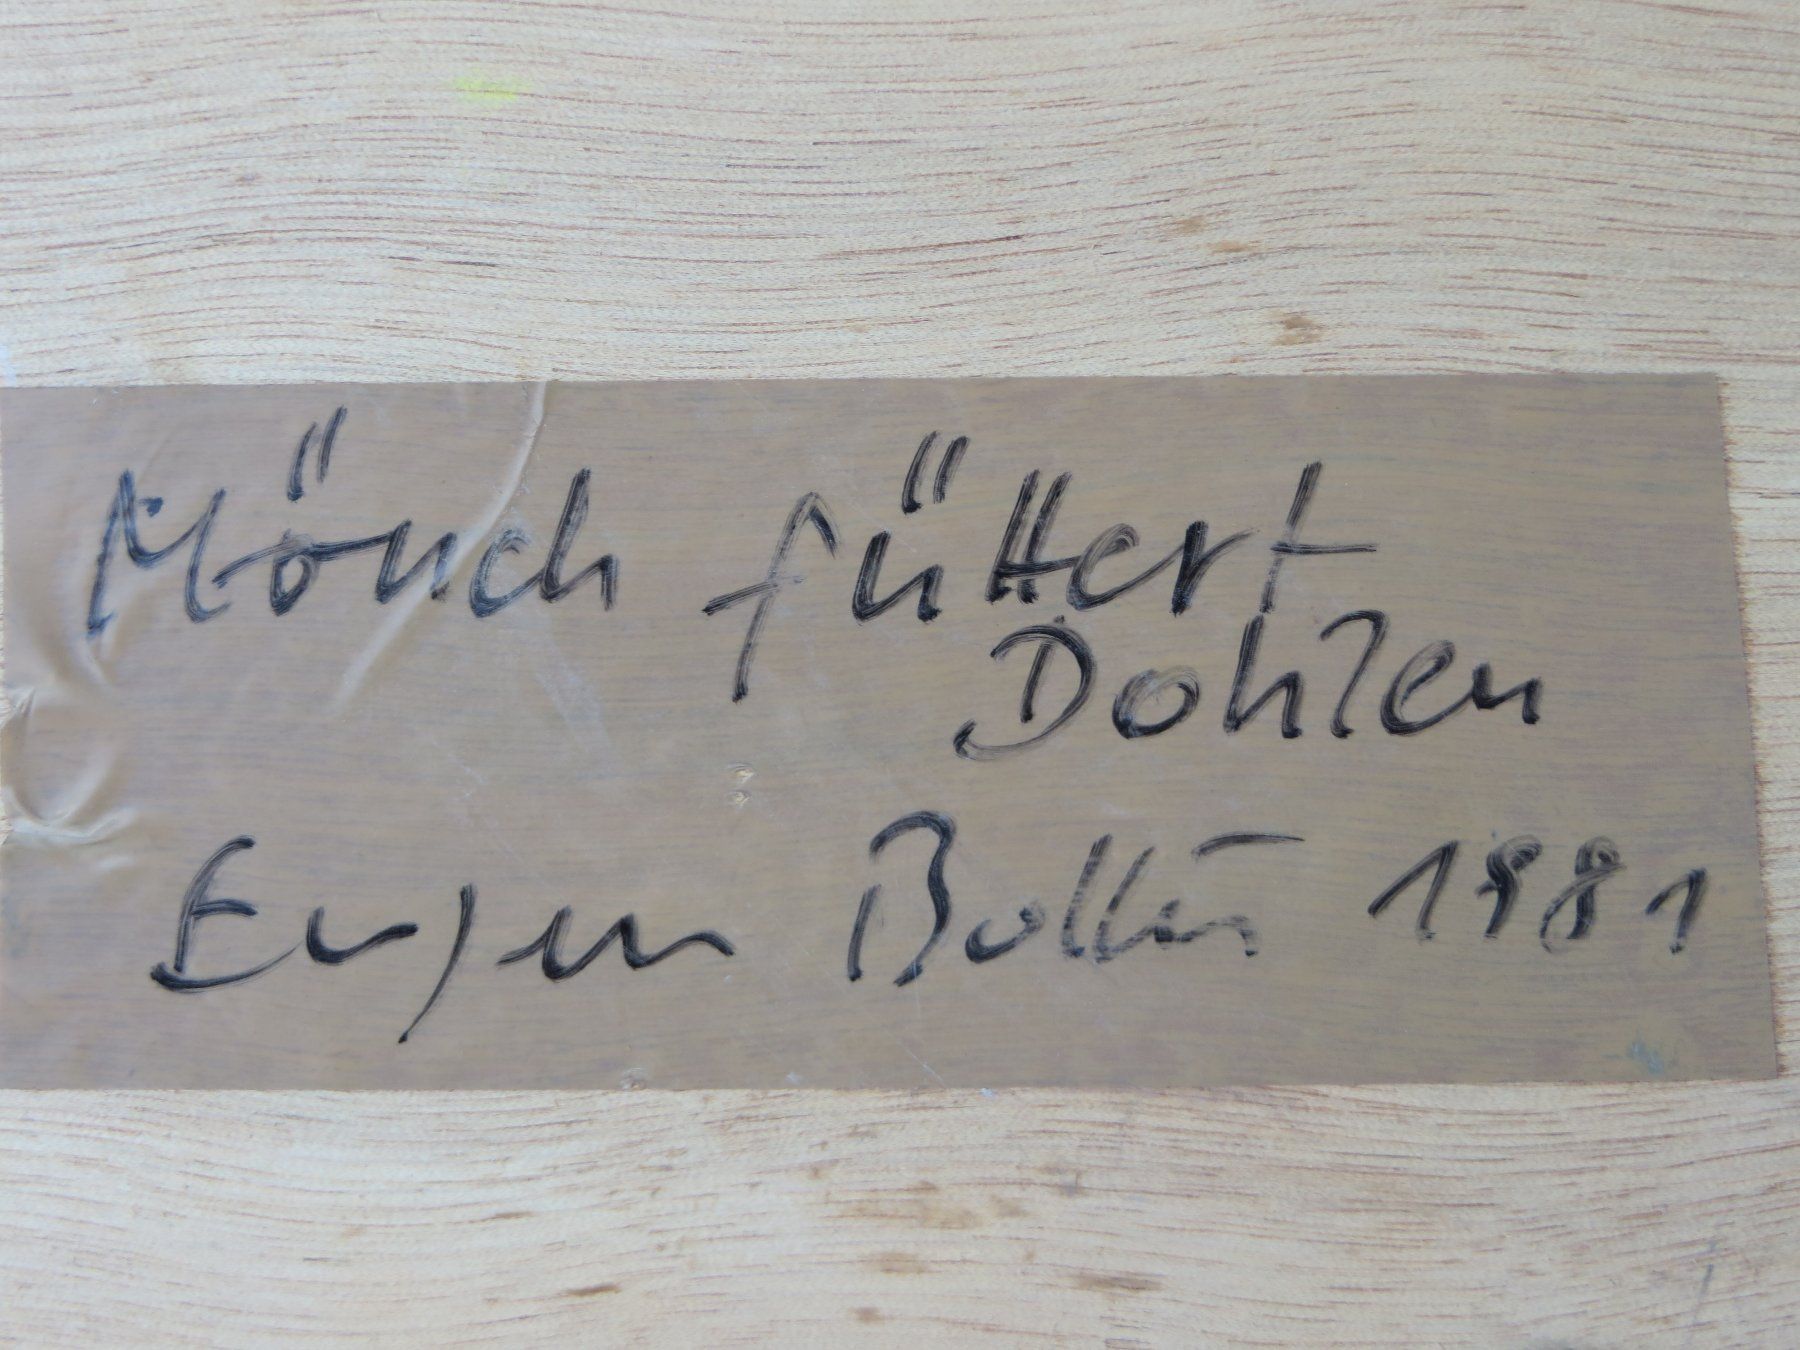 Mönch füttert
Dohlen
Eugen Bollin 1981